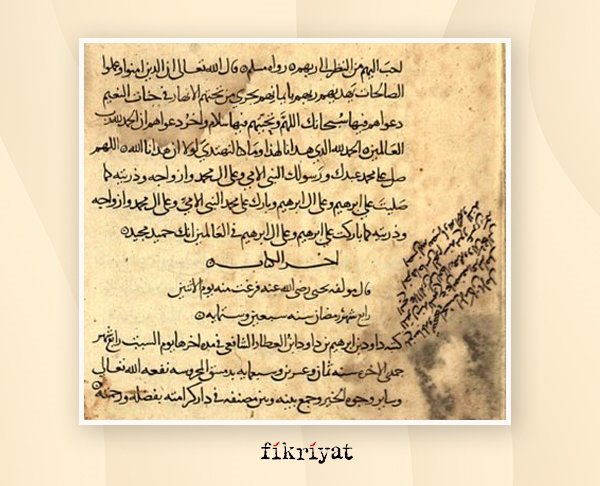 احب اليهم من النظر الى ربهم رواه مسلم قال الله تعالى ان الذين امنوا وعملوا
الصالحات يهديهم ربهم بايمانهم تجري من تحتهم الانهار في جنات النعيم
دعواهم فيها سبحانك اللهم وتحيتهم فيها سلام واخر دعواهم ان الحمد لله رب
العالمين الحمد لله الذي هدانا لهذا وما كنا لنهتدي لولا ان هدانا الله اللهم
صل على محمد عبدك ورسولك النبي الامي وعلى ال محمد وازواجه وذريته كما
صليت على ابرهيم وعلى ال ابرهيم وبارك على محمد النبي الامي وعلى ال محمد وازواجه
وذريته كما باركت على ابرهيم وعلى ال ابرهيم في العالمين انك حميد مجيد
اخر الكتاب
قال مولفه يحيى رضي الله عنه فرغت منه يوم الاثنين
رابع شهر رمضان سنه سبعين وستمايه
كتبه داود بن ابرهيم بن داود ابن العطار الشافعي في مدة اخرها يوم السبت رابع شهر
جمدى الاخره سنه ثمان وعشرين وسبعمايه بدمشق المحروسه نفعه الله تعالى
وساير وجوه الخير وجمع بينه وبين مصنفه في دار كرامته بفضله ورحمته
fikriyat